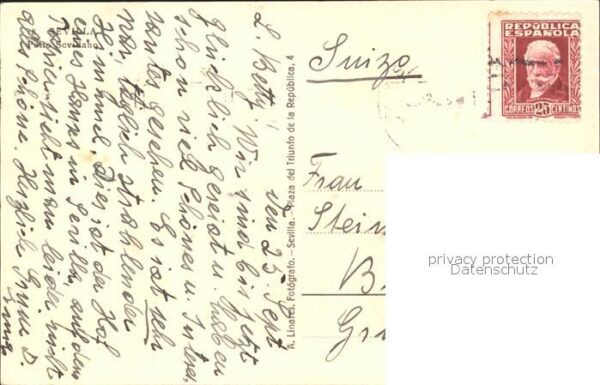 SEVILLA
Patio Sevillano
den 25. Sept
L. Betty, Wir sind bis jetzt
glücklich gereist u. haben
schon viel Schönes u. Interes-
santes gesehen. Es ist sehr
täglich strahlender
Himmel, Dies ist der Hof
eines Hauses in Sevilla, auf dem
sieht man leider nicht
alles Schöne. Herzliche D.
A. Linares, Fotógrafo. - Sevilla. - Plaza del Triunfo de la República, 4
Suiza
REPÚBLICA
ESPAÑOLA
CORREOS 25 CÉNTIMOS
Frau
Stein
B
Gr
privacy protection
Datenschutz